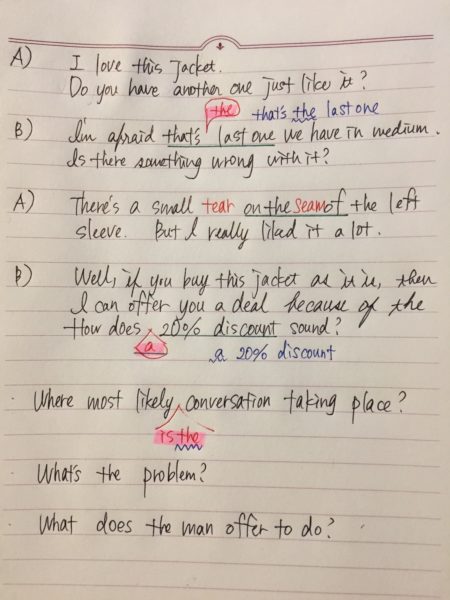 A) I love this jacket.
Do you have another one just like it?
the that's the last one
B) I'm afraid that's last one we have in medium.
Is there something wrong with it?
A) There's a small tear on the seam of the left
sleeve. But I really liked it a lot.
B) Well, if you buy this jacket as it is, then
I can offer you a deal because of the
How does 20% discount sound?
a a 20% discount
· Where most likely conversation taking place?
is the
· What's the problem?
· What does the man offer to do?